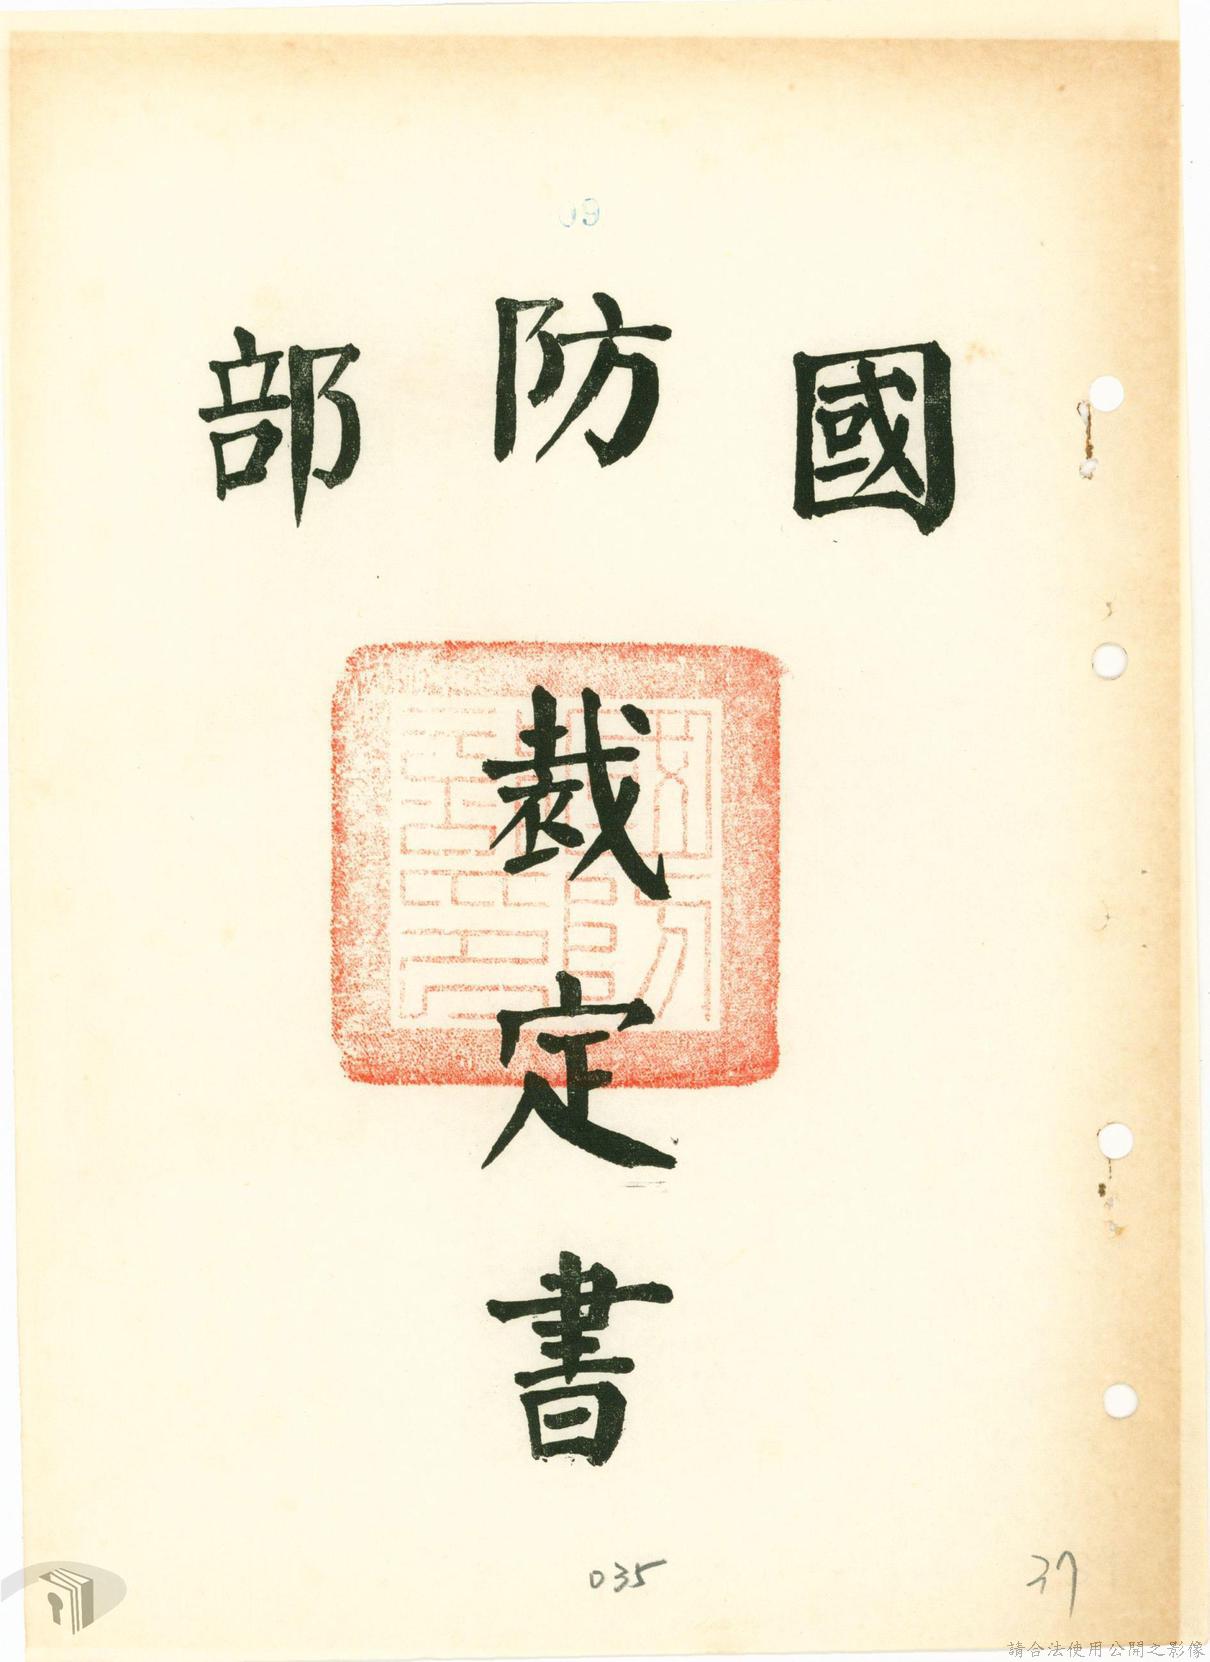 國防部
裁定書
035
37
請合法使用公開之影像